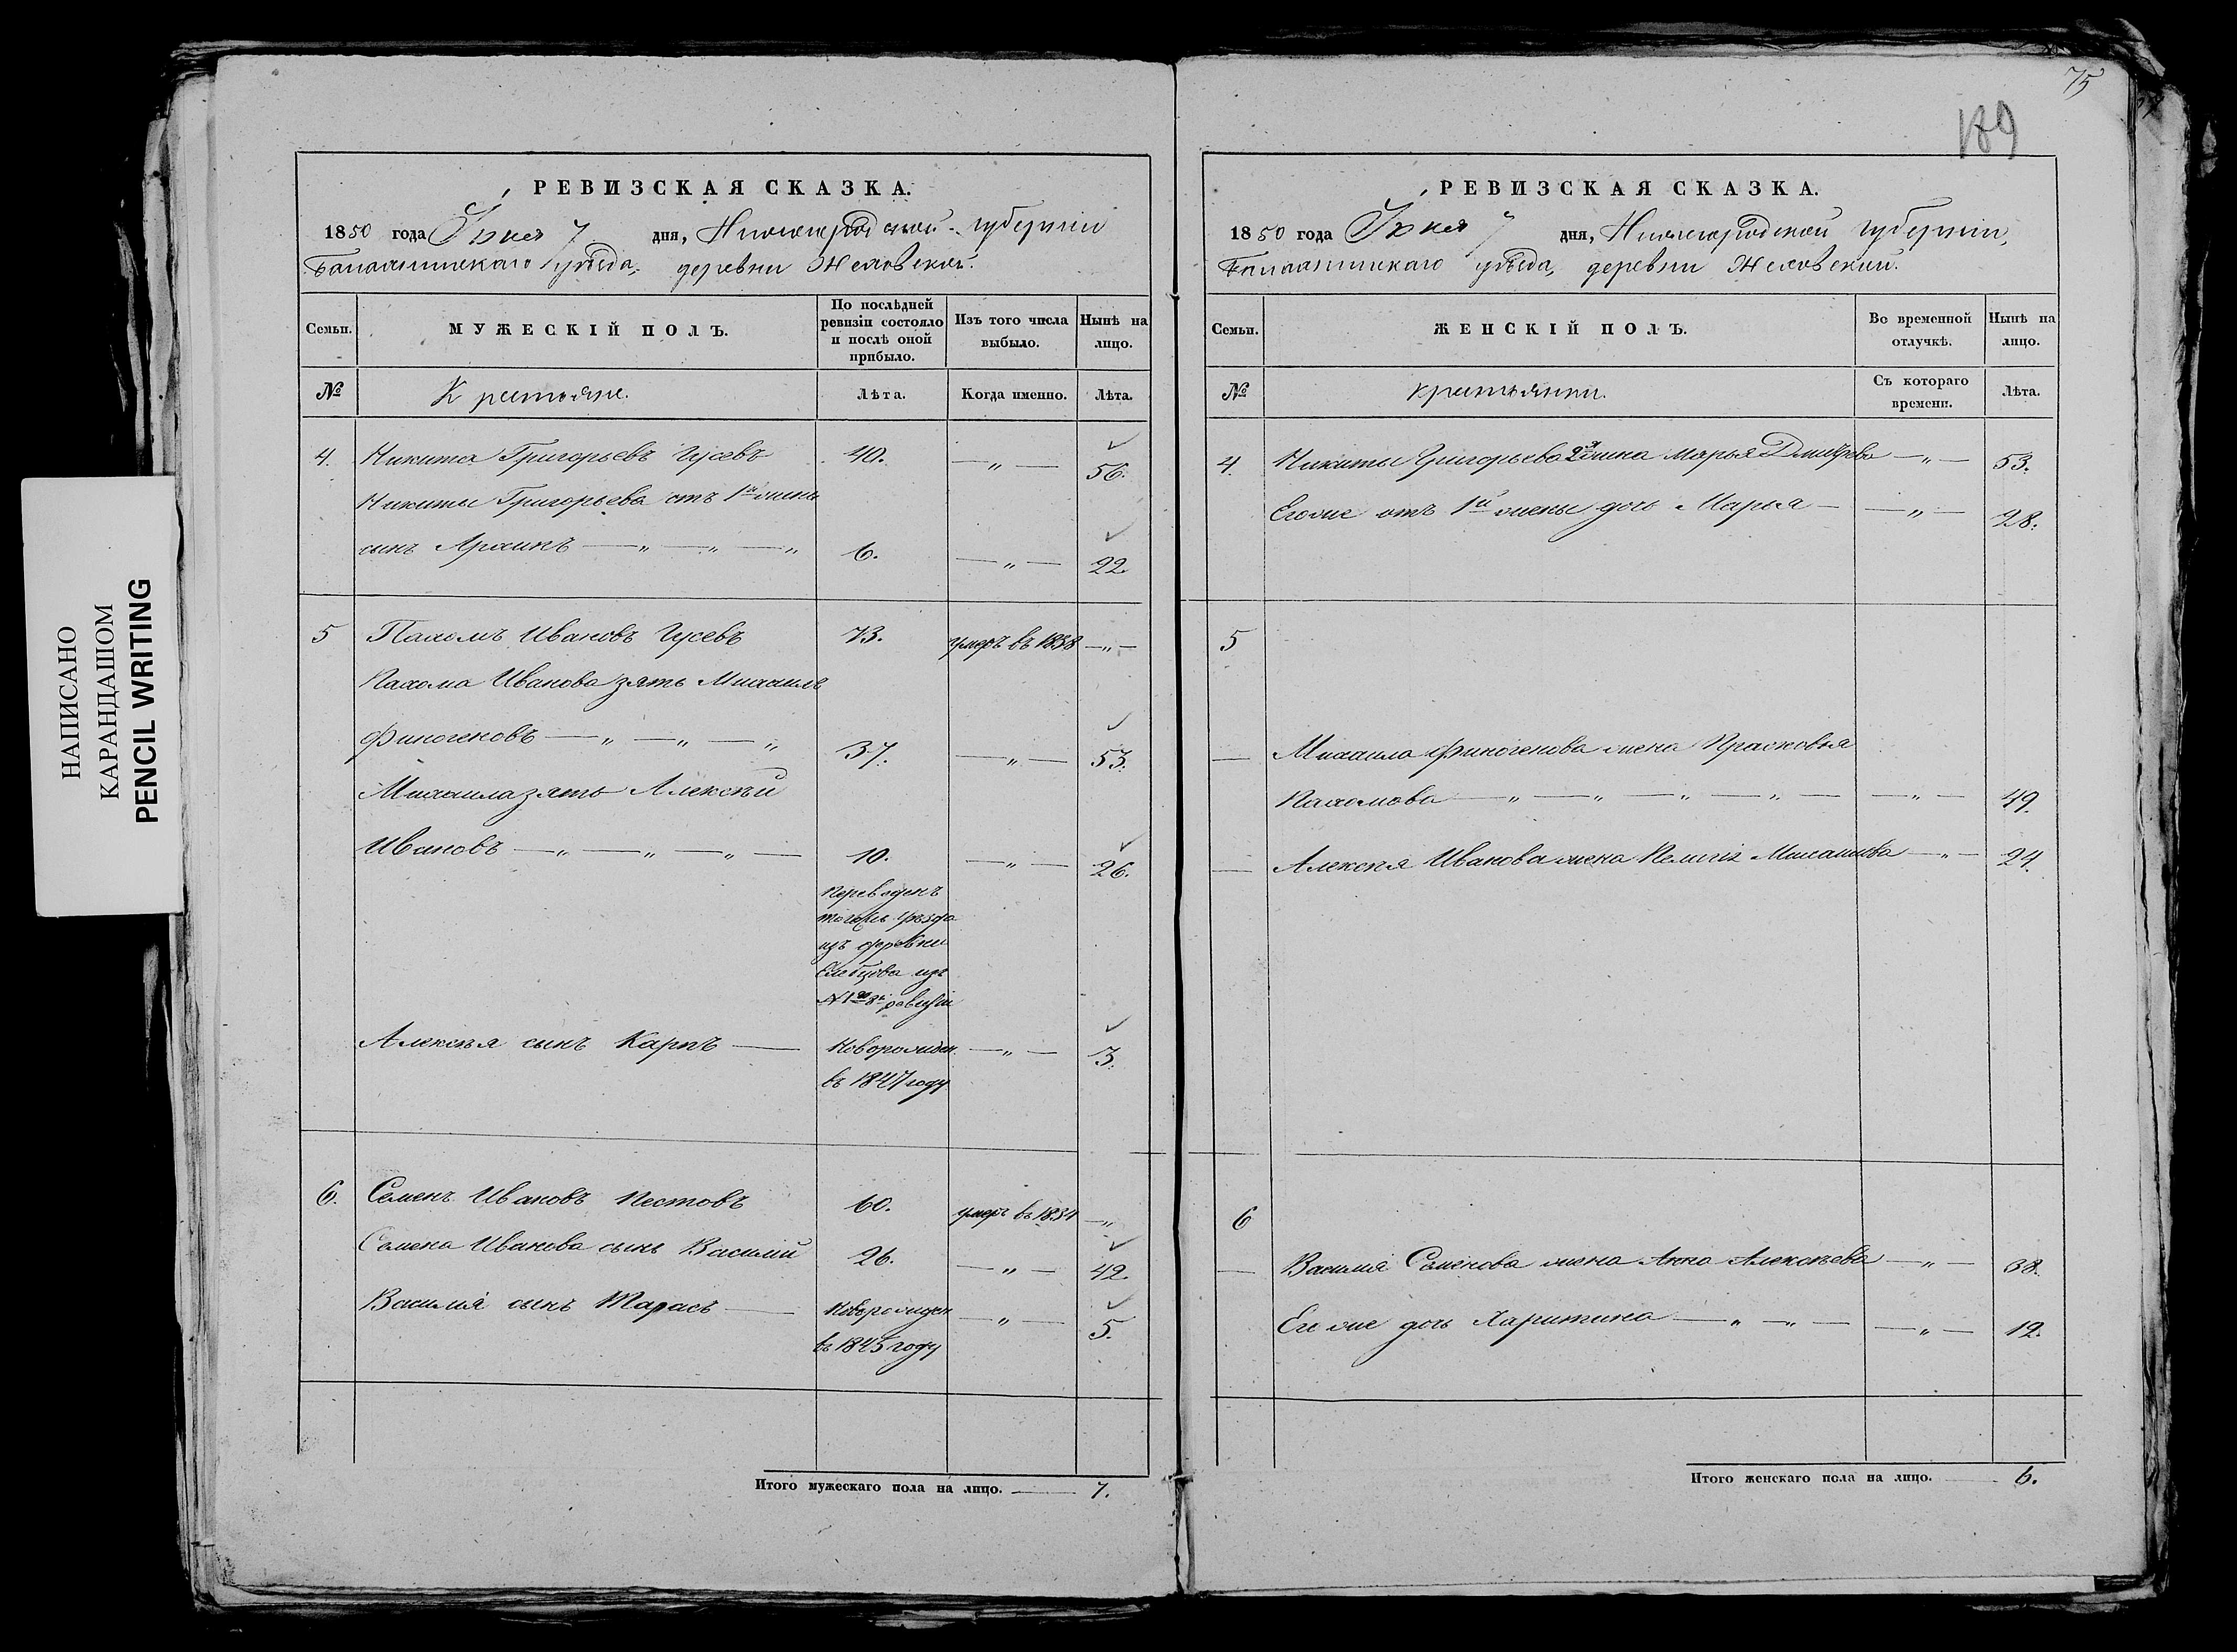 75
189
НАПИСАНО
КАРАНДАШОМ
PENCIL WRITING
РЕВИЗСКАЯ СКАЗКА.
1850 года Іюня 7 дня, Нижегородской губерніи
Балахнинскаго уѣзда, деревни
Семьи.
МУЖЕСКІЙ ПОЛЪ.
По послѣдней ревизіи состояло и послѣ оной прибыло.
Изъ того числа выбыло.
Нынѣ на лицо.
№
Крестьяне.
Лѣта.
Когда именно.
Лѣта.
4. Никита Григорьевъ Гусевъ 40. — „ — 56.
Никиты Григорьева отъ 1й жены
сынъ — „ — „ — „ 6. — „ — 22.
5 Пахомъ Ивановъ Гусевъ 73. умеръ въ 1838 — „ —
Пахома Иванова зять Михаилъ
Финогеновъ — „ — „ — „ 37. — „ — 53.
Михаила зять Алексѣй
Ивановъ — „ — „ — „ — 10. — „ — 26.
Переведенъ
тогожъ уѣзда
изъ деревни
изъ
ревизіи
Алексѣя сынъ Карпъ — Новорожден. — „ — 3.
въ 1847 году
6. Семенъ Ивановъ Пестовъ 60. умеръ въ 1834 — „
Семена Иванова сынъ Василій 26. — „ — 42.
Василія сынъ Тарасъ — Новорожден — „ — 5.
въ 1845 году
Итого мужескаго пола на лицо. — 7.
РЕВИЗСКАЯ СКАЗКА.
1850 года Іюня 7 дня, Нижегородской губерніи,
Балахнинскаго уѣзда, деревни
Семьи.
ЖЕНСКІЙ ПОЛЪ.
Во временной отлучкѣ.
Нынѣ на лицо.
№
Крестьянки.
Съ котораго времени.
Лѣта.
4. Никиты Григорьева 2я жена Марья Дмитрева — „ — 53.
Егоже отъ 1й жены дочь Марья — — „ — 28.
5
— Михаила Финогенова жена Прасковья
Пахомова — „ — „ — „ — „ — — „ — 49.
— Алексѣя Иванова жена Михайлова — „ — 24.
6
— Василія Семенова жена Анна Алексѣева — „ — 38.
Его же дочь Харитина — „ — „ — — „ — 12.
Итого женскаго пола на лицо. — 6.